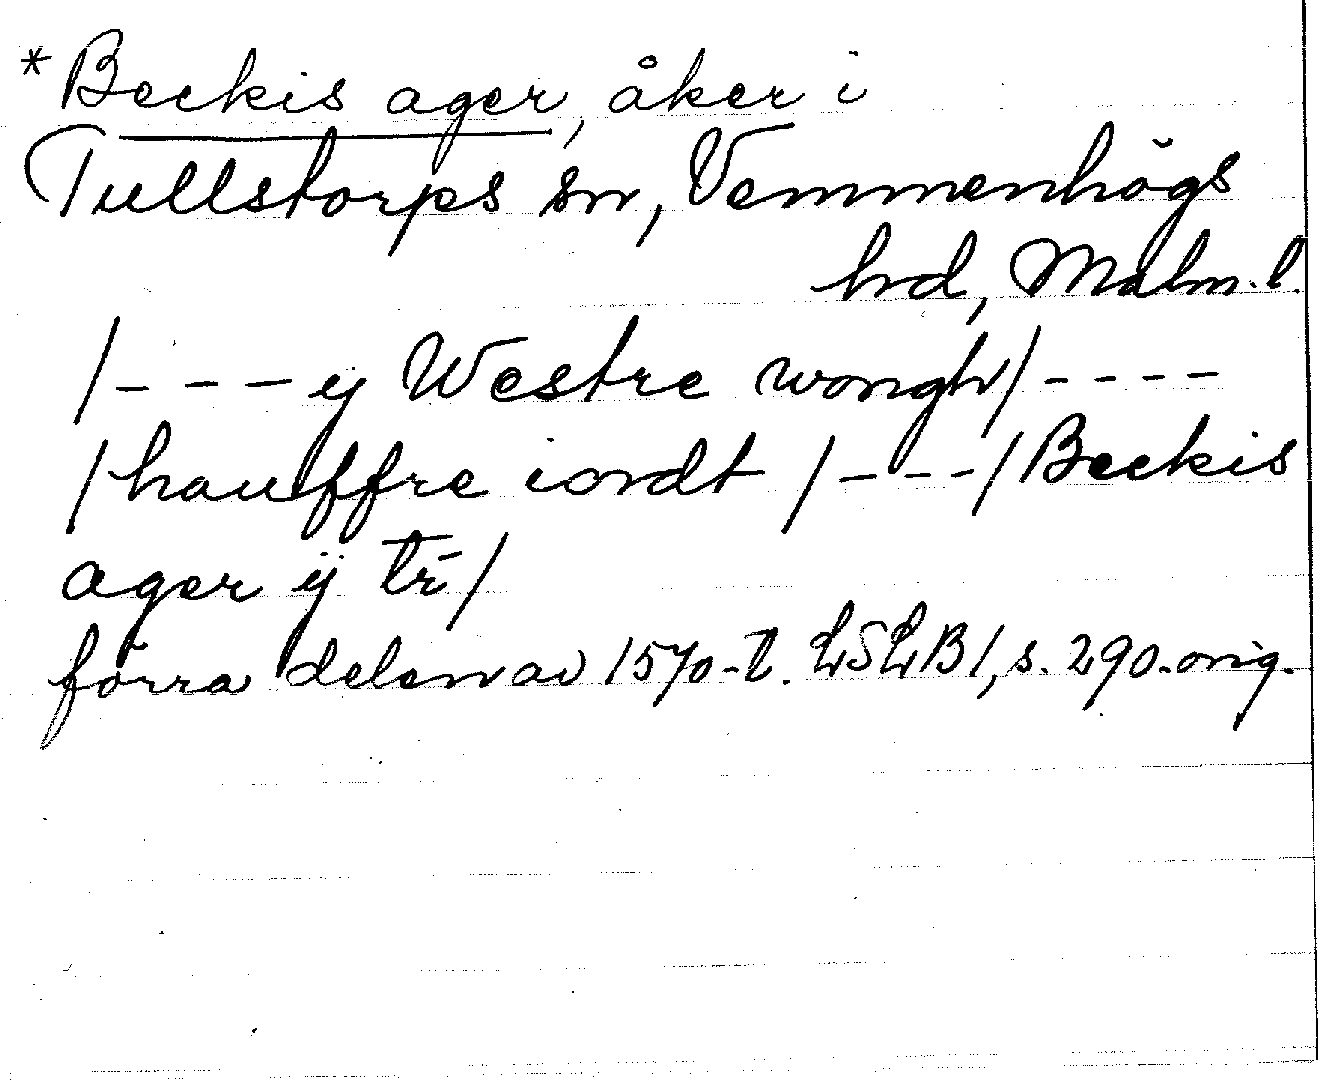 *Beckis ager, åker i
Tullstorps sn, Vemmenhögs
hd, Malm.l.
/- - - ij Westre wongh/ - - - -
/hauffre iordt /- - -/Beckis
ager ij tr̄/
förra delen av 1570-t. LSLB1, s. 290. orig.